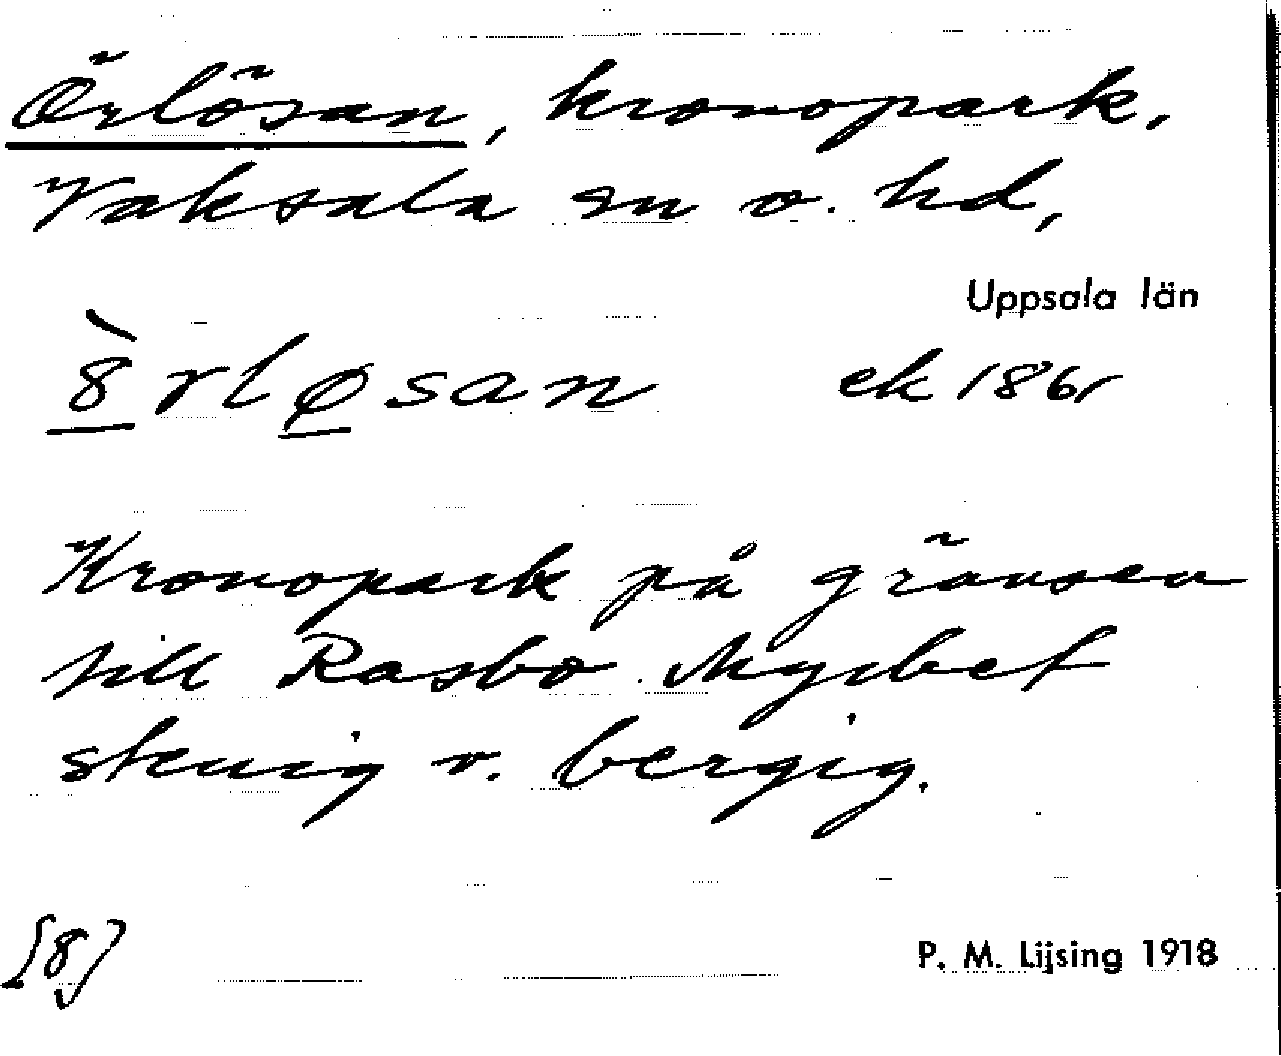 Örlösan, kronopark,
Vaksala sn o. hd,
Uppsala län
8̀rløsan ek 1861
Kronopark på gränsen
till Rasbo. Mycket
stenig o. bergig.
[8]
P. M. Lijsing 1918